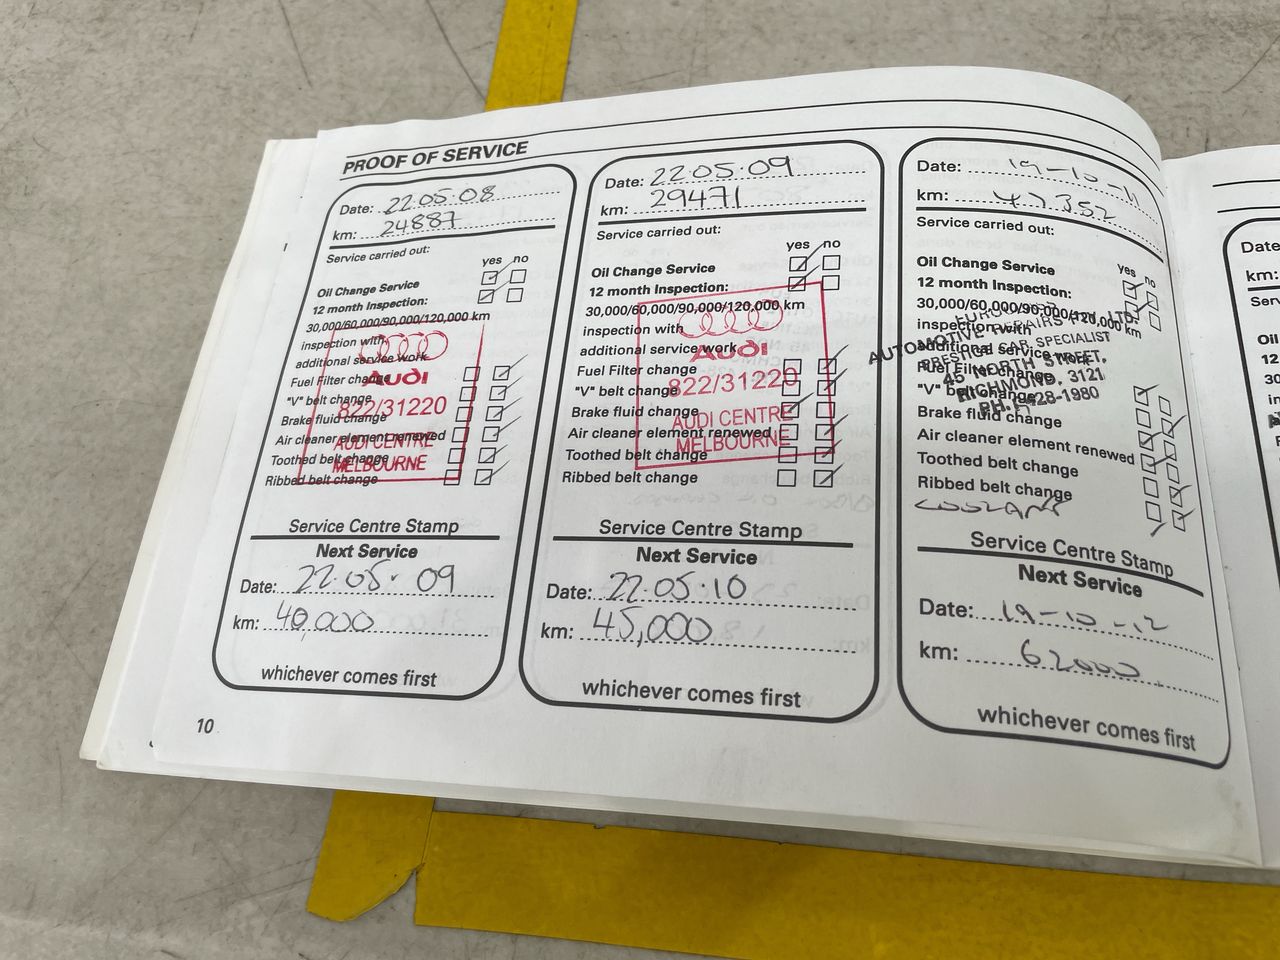 PROOF OF SERVICE
Date: 22.05.08
km: 24887
Service carried out:
yes no
Oil Change Service
12 month Inspection:
30,000/60,000/90,000/120,000 km
inspection with
additional service work
Fuel Filter change
"V" belt change
Brake fluid change
Air cleaner element renewed
Toothed belt change
Ribbed belt change
Audi
822/31220
AUDI CENTRE
MELBOURNE
Service Centre Stamp
Next Service
Date: 22.05.09
km: 40,000
whichever comes first
10
Date: 22.05.09
km: 29471
Service carried out:
yes no
Oil Change Service
12 month Inspection:
30,000/60,000/90,000/120,000 km
inspection with
additional service work
Fuel Filter change
"V" belt change
Brake fluid change
Air cleaner element renewed
Toothed belt change
Ribbed belt change
Audi
822/31220
AUDI CENTRE
MELBOURNE
Service Centre Stamp
Next Service
Date: 22.05.10
km: 45,000
whichever comes first
Date: 19-10-11
km: 47352
Service carried out:
yes no
Oil Change Service
12 month Inspection:
30,000/60,000/90,000/120,000 km
inspection with
additional service work
Fuel Filter change
"V" belt change
Brake fluid change
Air cleaner element renewed
Toothed belt change
Ribbed belt change
COOLANT
AUTOMOTIVE REPAIRS PTY. LTD.
PRESTIGE CAR SPECIALIST
45 NORTH STREET,
RICHMOND, 3121
Service Centre Stamp
Next Service
Date: 19-10-12
km: 62000
whichever comes first
Date
km: